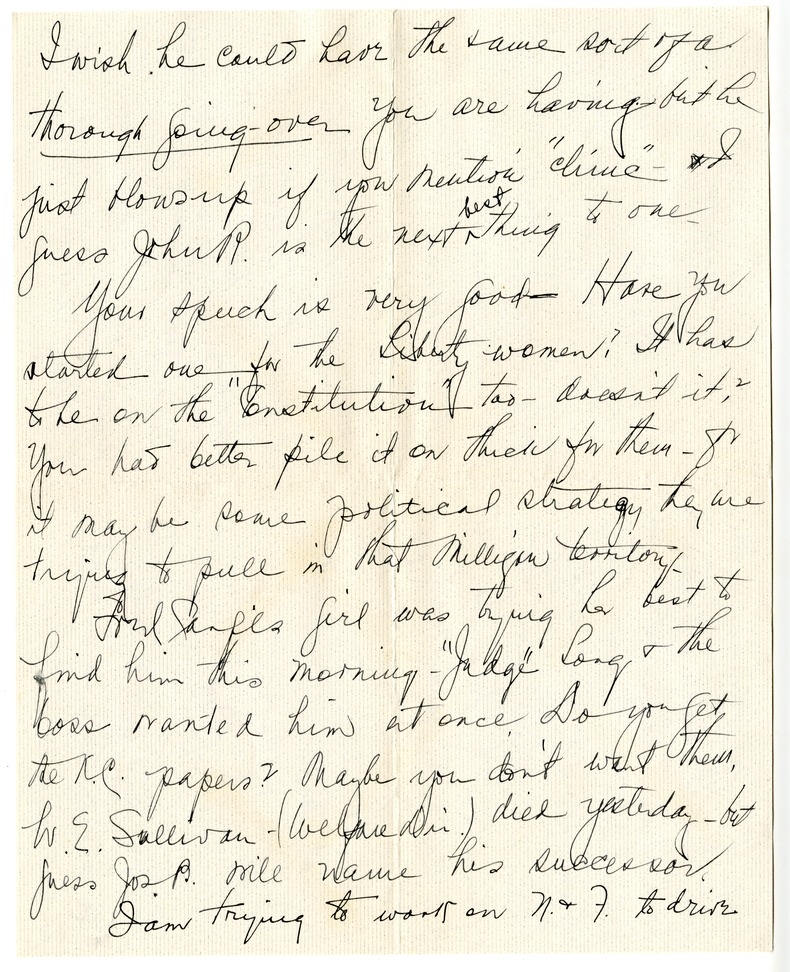 I wish he could have the same sort of a
thorough going-over you are having - but he
just blows up if you mention "clinic" - I
guess John R. is the next best thing to one -
Your speech is very good - Have you
started one for the Liberty women? It has
to be on the "Constitution" too - doesn't it?
You had better pile it on thick for them - for
it may be some political strategy they are
trying to pull in that Milligan territory.
Fred girl was trying her best to
find him this morning - "Judge" Long & the
boss wanted him at once Do you get
the K.C. papers? Maybe you don't want them.
W. E. Sullivan - (Welfare Dir.) died yesterday - but
guess Jos B. will name his successor.
I am trying to work on N. & F. to drive